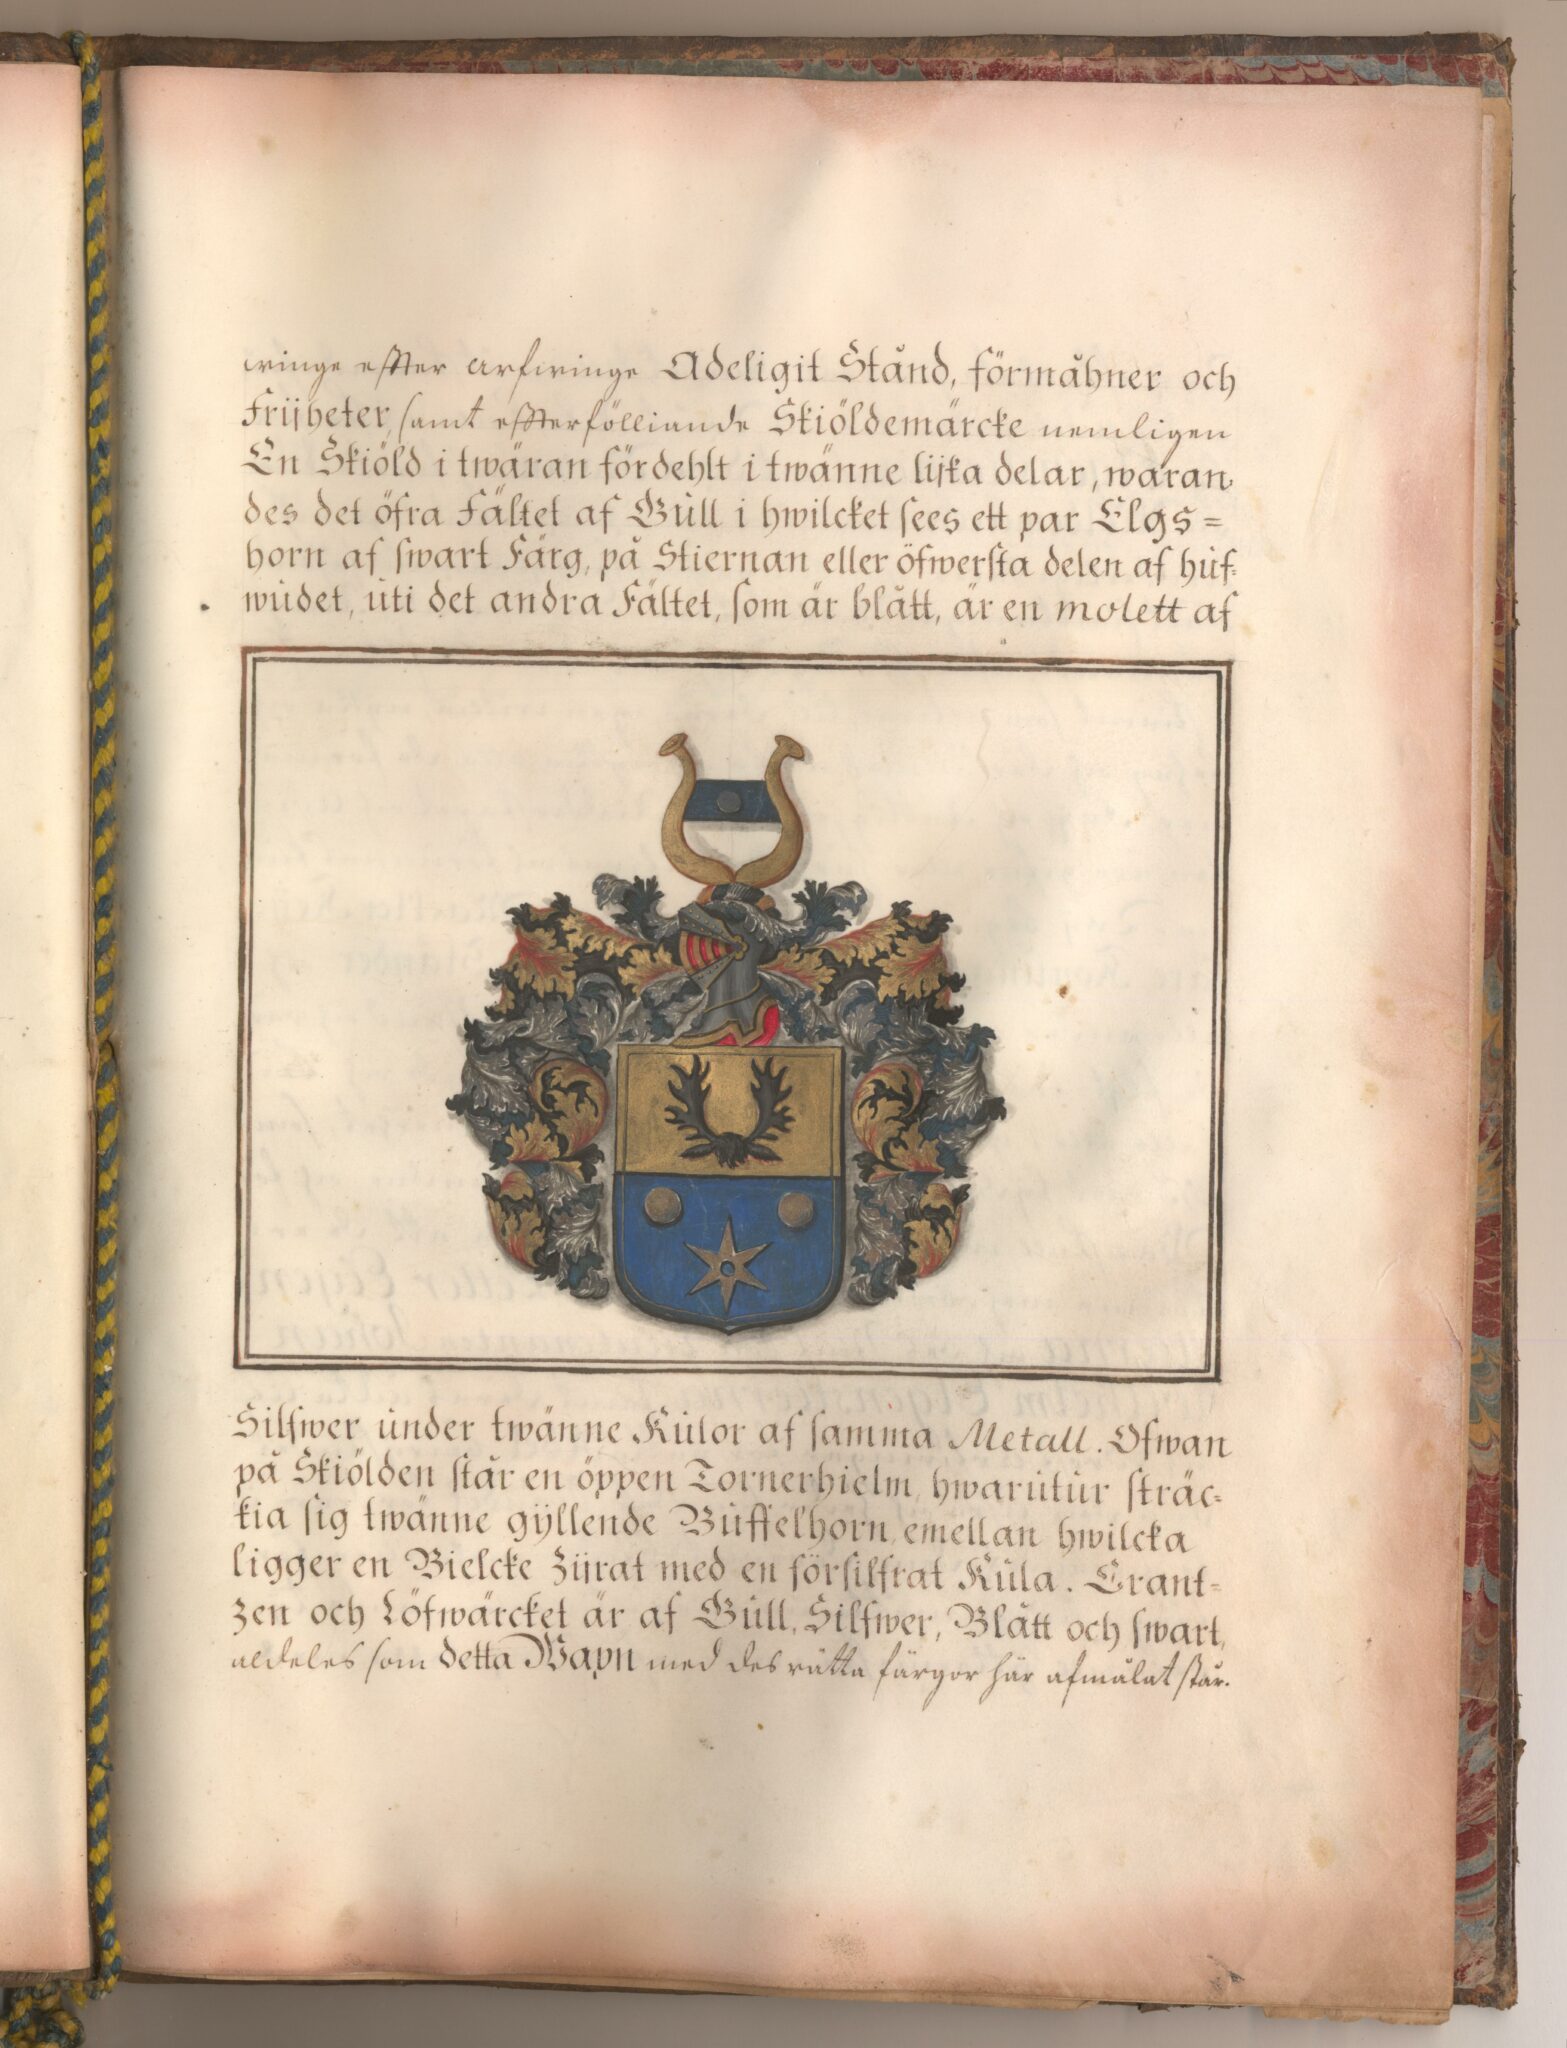 wringe effter arfwringe Adeligit Stånd, förmåhner och
Frijheter, samt effterfölliande Skiöldemärcke nemligen
En Skiöld i twäran fördehlt i twänne lijka delar, waran
des det öfra Fältet af Gull i hwilcket sees ett par Elgs=
horn af swart Färg, på Stiernan eller öfwersta delen af huf-
wudet, uti det andra Fältet, som är blått, är en molett af
Silfwer under twänne Kulor af samma Metall. Ofwan
på Skiölden står en öppen Tornerhielm, hwarutur sträc-
kia sig twänne gyllende Buffelhorn, emellan hwilcka
ligger en Bielcke Zijrat med en försilfrat Kula. Crant-
zen och Löfwärcket är af Gull, Silfwer, Blått och swart,
aldeles som detta Wapn med des rätta färgor här afmålat står.